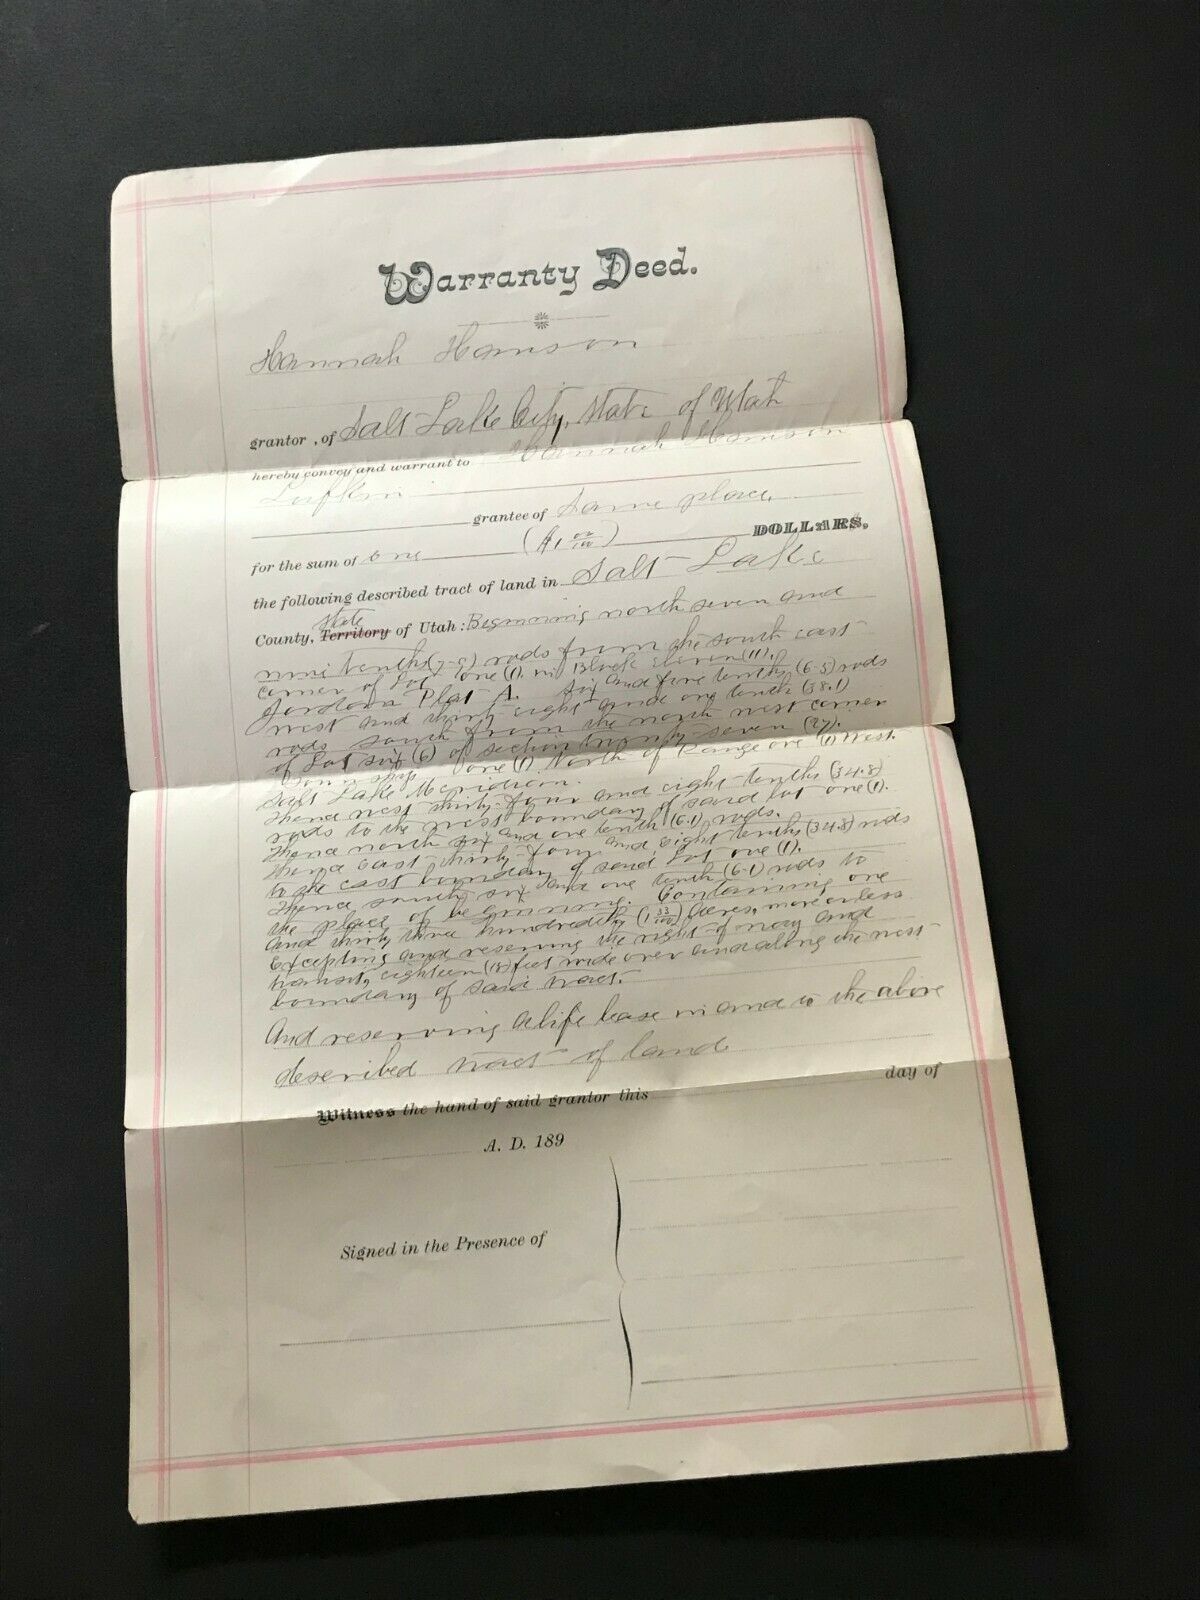 Warranty Deed.
Hannah Hanson
grantor, of Salt Lake City, State of Utah
hereby convey and warrant to Hannah Hanson
Lufkin
grantee of Same place,
for the sum of One ($1 00/100) DOLLARS,
the following described tract of land in Salt Lake
State
County, Territory of Utah: Begining north seven and
nine tenths (7-9) rods from the south east
corner of Lot one (1) in Block Eleven (11).
Jordan Plat A. Six and five tenths (6-5) rods
west and thirty eight and one tenth (38.1)
rods south from the north west corner
of Lot six (6) of section twenty-seven (27).
Township one (1) North of Range one (1) West.
Salt Lake Meridian.
Thence west thirty-four and eight tenths (34.8)
rods to the west boundary of said lot one (1).
Thence north six and one tenth (6.1) rods.
Thence east thirty-four and eight tenths (34.8) rods
to the east boundary of said Lot one (1).
Thence south six and one tenth (6-1) rods to
the place of beginning. Containing one
and thirty three hundredths (1 33/100) Acres, more or less
Excepting and reserving the right of way and
transit, eighteen (18) feet wide over and along the west
boundary of said tract.
And reserving a life lease in and to the above
described tract of land
Witness the hand of said grantor this day of
A. D. 189
Signed in the Presence of